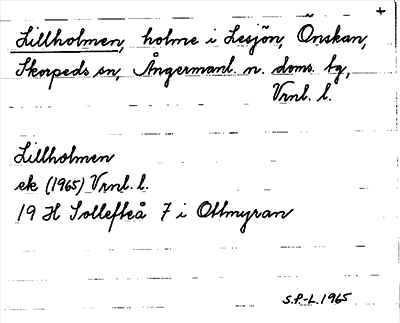 +
Lillholmen, holme i Lesjön, Önskan,
Skorpeds sn, Ångermanl. n. doms. bg,
Vrnl. l.
Lillholmen
ek (1965) Vrnl. l.
19 H Sollefteå 7 i Ottmyran
S.P.-L. 1965